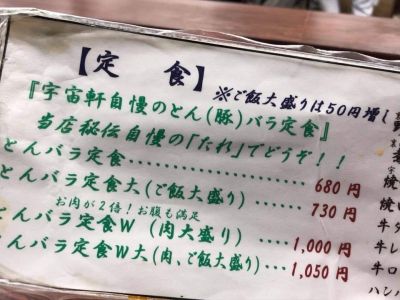 【定 食】
※ご飯大盛りは50円増し
『宇宙軒自慢のとん(豚)バラ定食』
当店秘伝自慢の「たれ」でどうぞ!!
とんバラ定食 680円
とんバラ定食大(ご飯大盛り) 730円
お肉が2倍!お腹も満足
とんバラ定食W (肉大盛り) 1,000円
とんバラ定食W大(肉、ご飯大盛り) 1,050円
焼
焼
牛タ
牛レ
牛ロ
ハン